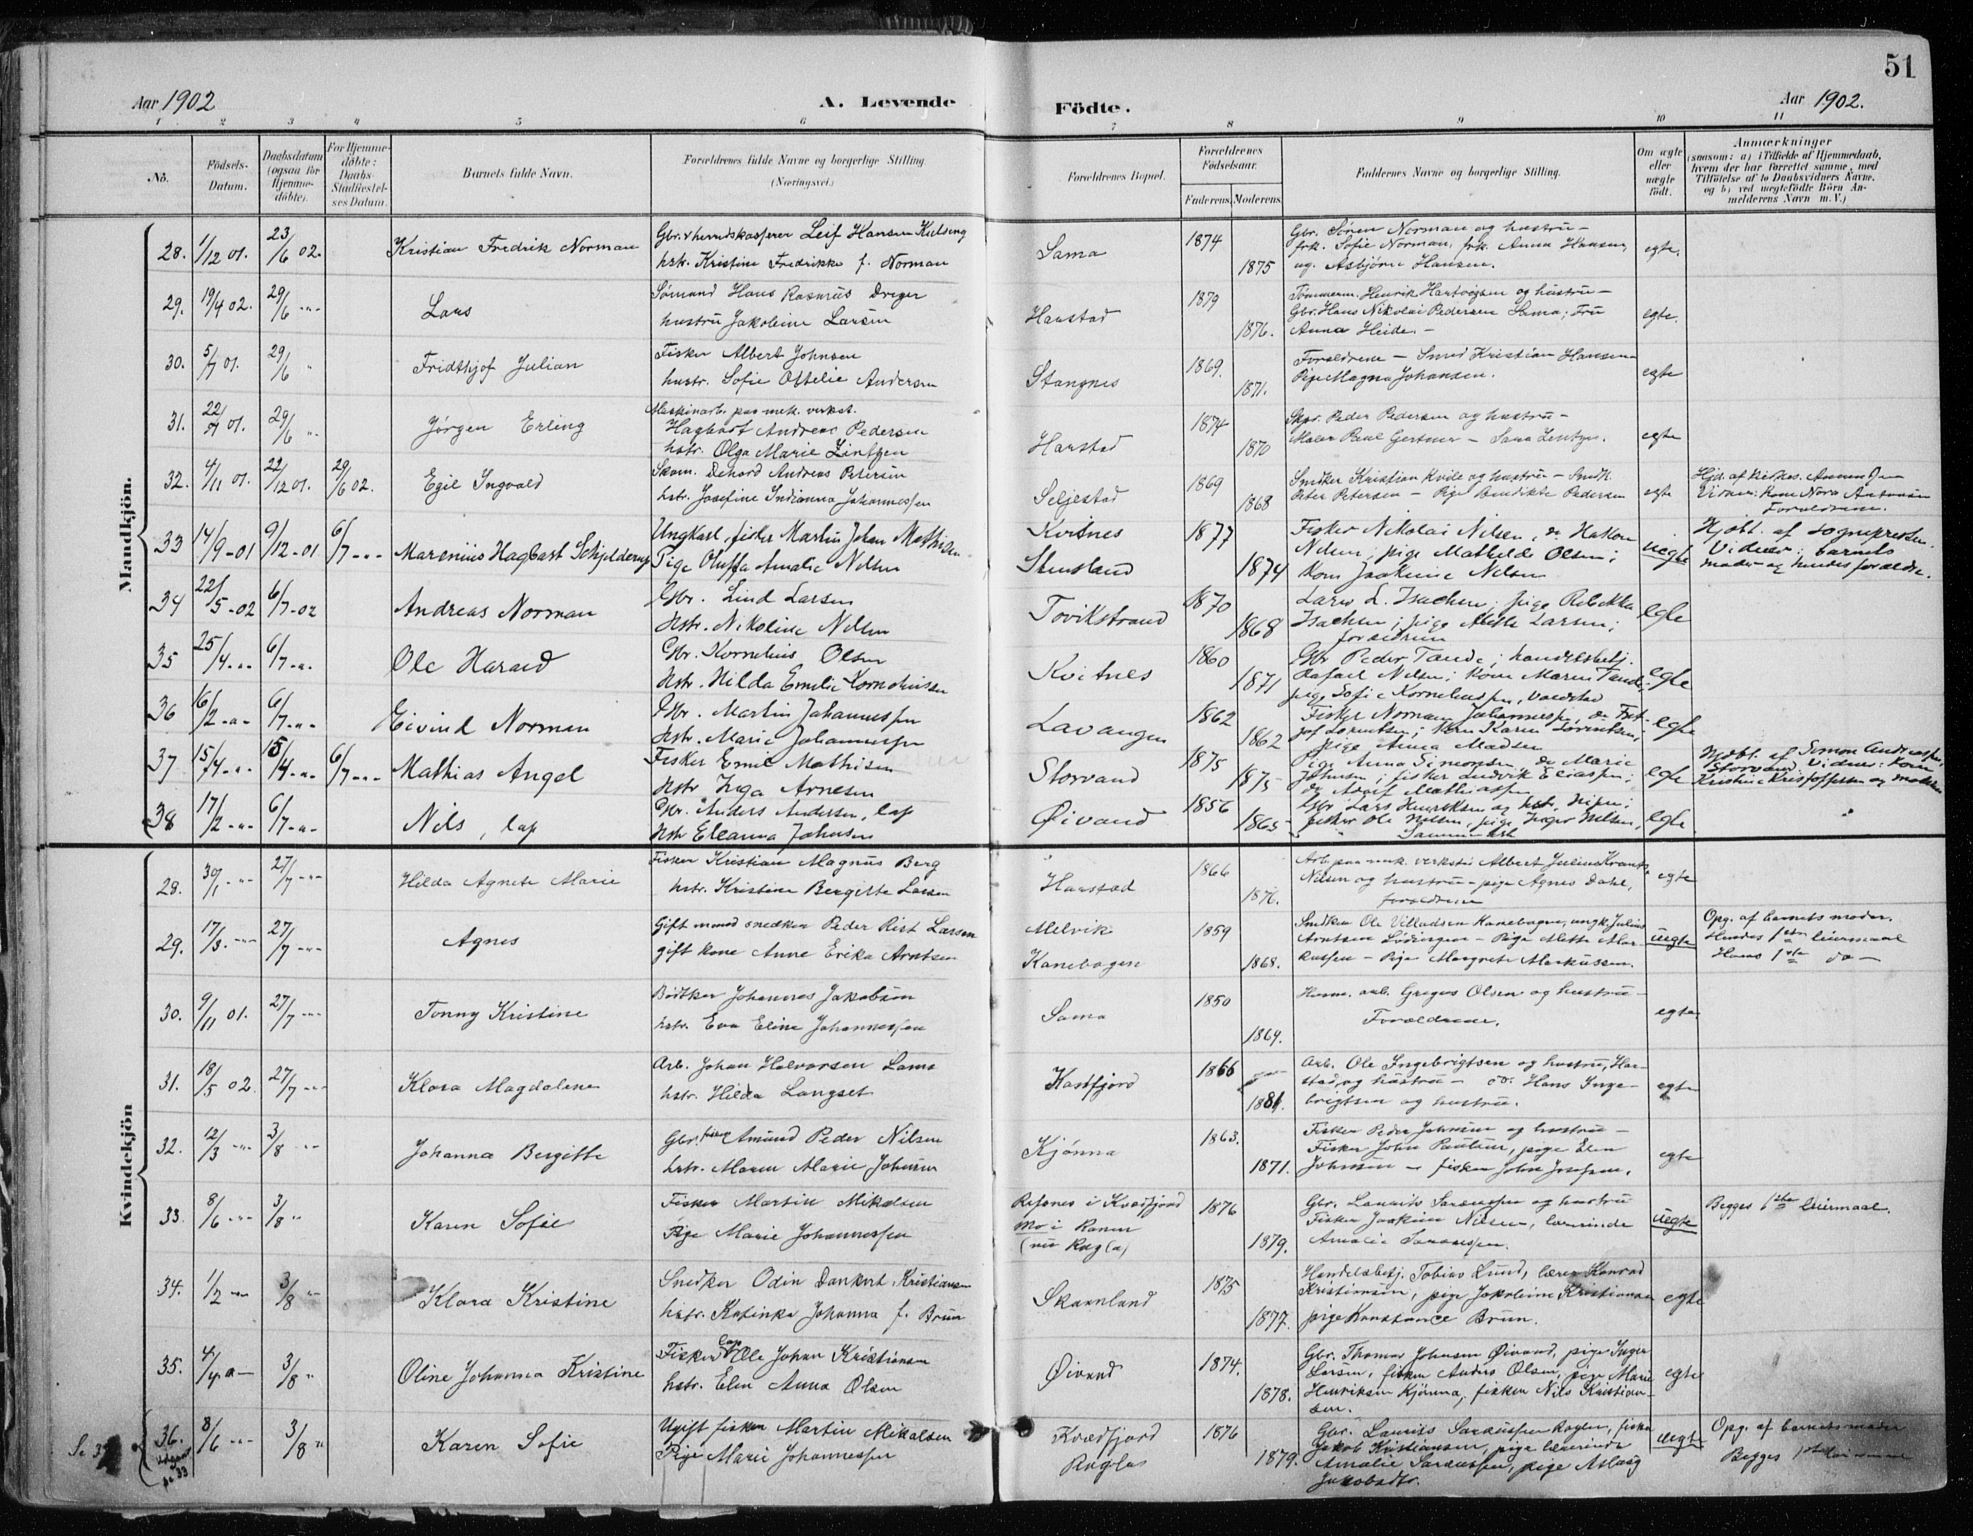 51
Aar 1902
A. Levende Födte.
Aar 1902.
1 2 3 4 5 6 7 8 9 10 11
No.
Födsels-Datum.
Daabsdatum (ogsaa for Hjemmedöbte).
For Hjemmedöbte: Daabs-Stadfæstelses Datum.
Barnets fulde Navn.
Forældrenes fulde Navne og borgerlige Stilling (Næringsvei).
Forældrenes Bopæl.
Forældrenes Födselsaar.
Faderens. Moderens.
Faddernes Navne og borgerlige Stilling.
Om ægte eller uægte födt.
Anmærkninger
(saasom: a) i Tilfælde af Hjemmedaab, hvem der har forrettet samme, med Tilföielse af to Daabsvidners Navne, og b) ved uægtefödte Börn Anmelderens Navn m. V.)
Mandkjön.
28. 1/12 01. 23/6 02. Kristian Fredrik Norman
Gbr. & herredskasserer Leif Hansen
hstr. Kristine Fredrikke f. Norman
Sama 1874 1875
Gbr. Sören Norman og hustru -
frk. Sofie Norman, frk. Anna Hansen,
ug. Asbjörn Hansen.
egte.
29. 19/4 02. 29/6 -"- Lars
Sömand Hans Rasmus Dreyer
hustru Jakobine Larsen
Harstad 1879 1876.
Tömmerm. Henrik Hartvigsen og hustru -
Gbr. Hans Nikolai Pedersen Sama; Fru
Anna Heide. -
egte.
30. 5/7 01. 29/6 " Fridthjof Julian
Fisker Albert Johnsen
hustr. Sofie Ottelie Andersen
Stangnes 1869. 1871.
Forældrene - Smed Kristian Hansen -
Pige Magna Johansen.
egte
31. 22/7 01. 29/6 " Jörgen Erling
Maskinarb. paa mek. verkst.
Hagbart Andreas Pedersen
hstr. Olga Marie Lintzen
Harstad 1874 1870
Skpr. Peder Pedersen og hustru -
Maler Paul Gertner - Sara Lentzen.
egte
32. 4/11 01. 22/12 01. 29/6 02. Egil Ingvald
Skom. Andreas Petersen
hstr. Josefine Indianna Johannessen
Seljestad 1869 1868
Snedker Kristian Kvile og hustru - Snedk.
Peter Petersen - Pige Benedikte Pedersen
egte
Forældrene.
33 14/9-01 9/12-01 6/7-"- Marenius Hagbart Schjelderup
Ungkarl, fisker Martin Johan Mathisen
Pige Oluffa Amalie Nilsen
Kvitnes
Stensland
1877 1874
Fisker Nikolai Nilsen, do Hakon
Nilsen; pige Mathilde Olsen;
Kone Joakime Nilsen
uegte
Hjdbt. af sognepresten.
Vidner: barnets
moder og hendes forældre.
34 22/5-02 6/7-02 Andreas Norman
Gbr. Lind Larsen
Hstr. Nikoline Nilsen
Tovikstrand 1870 1868
Lars L. Isachsen; pige Rebekka
Isachsen; pige Mette Larsen;
forældrene
egte
35 25/4-"- 6/7-"- Ole Harald
Gbr. Kornelius Olsen
Hstr. Hilda Emelie Korneliussen
Kvitnes 1860 1871
Gbr Peder Tande; handelsbetj.
Rafael Nilsen; kone Maren Tande;
pige Sofie Korneliussen, Voldstad
egte
36 16/2-"- 6/7-"- Eivind Norman
Gbr. Martin Johannessen
Hstr. Marie Johannessen
Lavangen 1862 1862
Fisker Norman Johannessen, do Fritjof Lorentsen; Kone Karen Lorentsen;
pige Anna Madsen
egte
37 15/4-"- 15/4-"- 6/7-"- Mathias Angel
Fisker Emil Mathisen
Hstr Inga Arnesen
Storvand 1875 1875
Pige Anna Simonsen, do Marie
Johnsen; fisker Ludvik Eliassen;
do Adolf Mathiassen
egte
Hjdbt. af Simon Andreassen,
Storvand, Vidner: Kone
Kristine Kristoffersen og moderen
38 17/2-"- 6/7-"- Nils, lap
Gbr. Anders Andersen, lap
Hstr Eleanna Johnsen
Øivand 1856 1865
Gbr Lars Henriksen og hstr.
fisker Ole Nilsen, pige Inger Nilsen,
Sammested
egte
Kvindekjön
28. 30/1 -"- 27/7 -"- Hilda Agnete Marie
Fisker Kristian Magnus Berg
hstr. Kristine Bergitte Larsen
Harstad 1866 1876.
Arb. paa mek. verksted Albert Julius
Nilsen og hustru - pige Agnes Dahl,
forældrene
egte
29. 17/3 -"- 27/7 -"- Agnes
Gift mand snedker Peder Rist Larsen
gift kone Anne Erika Arntsen
Melvik
Kanebogen
1859 1868.
Snedker Ole Villadsen Kanebogen, ungk. Julius
Arntsen Lödingen - Pige Mette Markussen - Pige Margrete Markussen.
uegte
Opg. af barnets moder.
Hendes 1ste leiermaal
Hans 1ste do -
30. 9/11 01. 27/7 -"- Tonny Kristine
Bödtker Johannes Jakobsen
hstr. Eva Eline Johannessen
Sama 1850 1864.
arb. Gregus Olsen og hustru -
Forældrene.
egte
31. 18/5 02. 27/7 -"- Klara Magdalene
Arb. Johan Halvorsen Lams
hstr. Hilda Langset
Kastfjord 1866 1881.
Arb. Ole Ingebrigtsen og hustru, Harstad, og hustru - do. Hans Ingebrigtsen og hustru.
egte
32. 12/3 -"- 3/8 -"- Johanna Bergitte
Gbr. fisker Amund Peder Nilsen
hstr. Maren Marie Johnsen
Kjönna 1863. 1871.
Fisker Peder Johnsen og hustru -
Fisker John Paulsen, pige Elen
Johnsen - fisker John Josefsen.
egte
33. 8/6 -"- 3/8 " Karen Sofie
Fisker Martin Mikalsen
Pige Marie Johannessen
Refsnes i Kvædfjord
Mo i Ranen
(nu Rogla)
1876 1879.
Gbr. Laurits Saraussen og hustru
Fisker Joakim Nilsen, lærerinde
Amalie Saraussen.
uegte
Begges 1ste leiermaal.
34. 1/2 -"- 3/8 " Klara Kristine
Snedker Odin Dankert Kristiansen
hstr. Katinka Johanna f. Brun
Skaanland 1875 1877.
Handelsbetj. Tobias Lund, lærer Konrad
Kristiansen, pige Jakobine Kristiansen
pige Konstance Brun.
egte
35. 4/4 -"- 3/8 " Oline Johanna Kristine
Fisker lap Ole Johan Kristiansen
hstr. Elen Anna Olsen
Øivand 1874. 1878.
Gbr. Thomas Johnsen Øivand, pige Inger
Larsen, fisker Anders Olsen, pige Marie
Henriksen Kjönna, fisker Nils Kristiansen.
egte
Se 33
36. 8/6 -"- 3/8 " Karen Sofie
Ugift fisker Martin Mikalsen
Pige Marie Johannessen
Kvædfjord
Rogla
1876 1879.
Gbr. Laurits Saraussen Roglen, fisker
Jakob Kristiansen, pige lærerinde
Amalie Saraussen, pige Aslaug
Jakobsdtr.
uegte
Opg. af barnets moder
Begges 1ste leiermaal